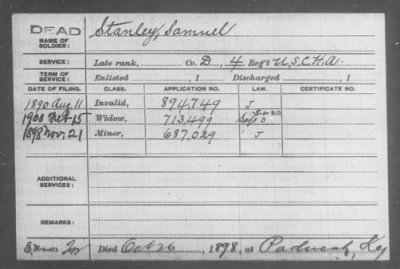 DEAD
NAME OF SOLDIER: Stanley, Samuel
SERVICE: Late rank, Co. D, 4 Reg't U.S.C.H.A.
TERM OF SERVICE: Enlisted , 1 Discharged , 1
DATE OF FILING. CLASS. APPLICATION NO. LAW. CERTIFICATE NO.
1890 Aug. 11 Invalid, 894,749 J
1900 15 Widow, 713,499
1898 Nov. 21 Minor, 687,029 J
ADDITIONAL SERVICES:
REMARKS:
Died Oct 26, 1898, at Paducah, Ky